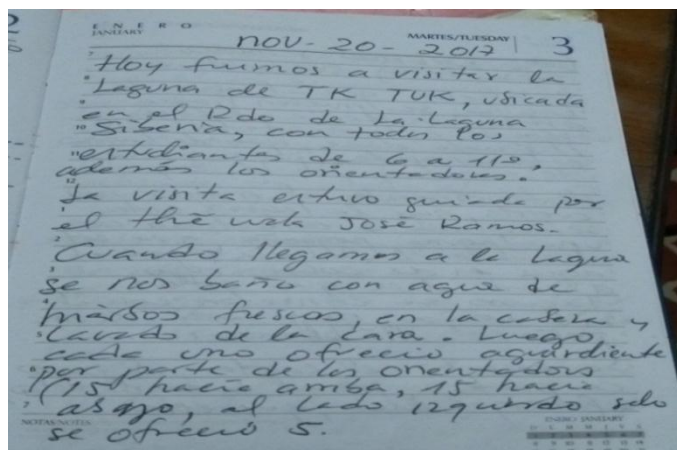 ENERO
JANUARY
MARTES/TUESDAY
3
nov- 20 - 2017
Hoy fuimos a visitar la
Laguna de TK TUK, ubicada
en el Rdo de La Laguna
Siberia, con todos los
estudiantes de 6 a 11º,
además los orientadores.
La visita estuvo guiada por
el thê wala José Ramos.
Cuando llegamos a la Laguna
se nos baño con agua de
hierbas frescas, en la cabeza y
lavado de la cara. Luego
cada uno ofreció aguardiente
por parte de los orientadores
(15 hacia arriba, 15 hacia
abajo, al lado izquierdo solo
se ofreció 5.
NOTAS/NOTES
ENERO JANUARY